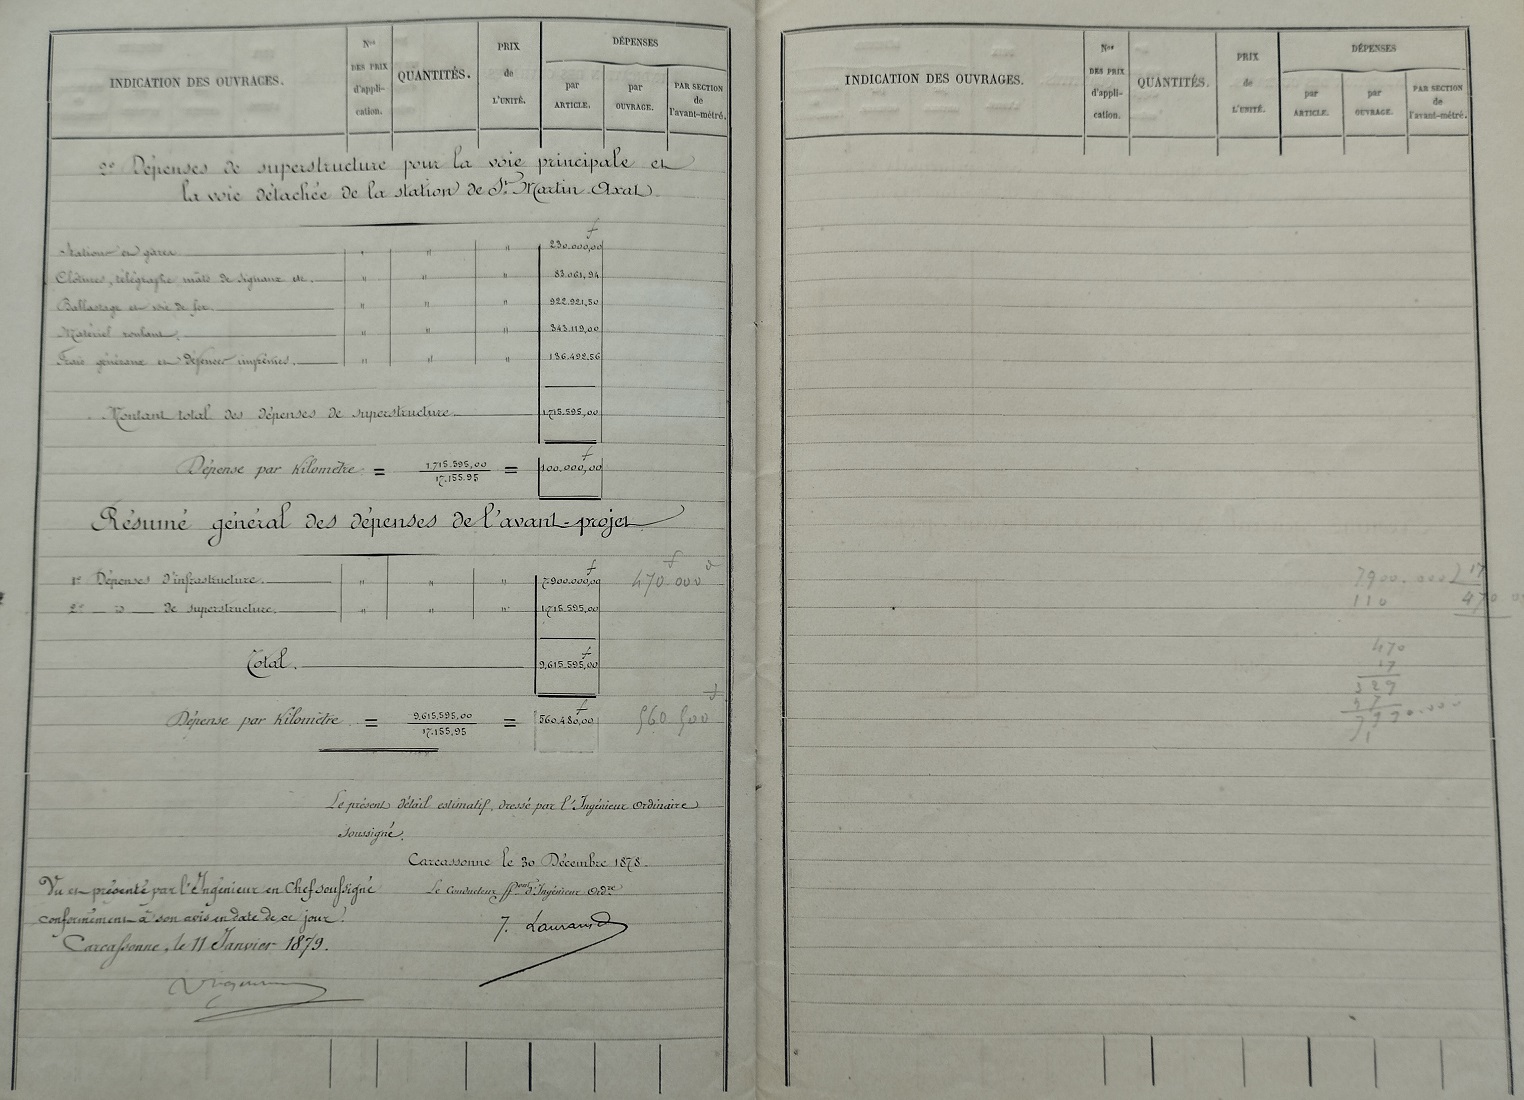 INDICATION DES OUVRAGES.
Nos DES PRIX d'appli- cation.
QUANTITÉS.
PRIX de L'UNITÉ.
DÉPENSES
par ARTICLE.
par OUVRAGE.
PAR SECTION de l'avant-métré.
2º Dépenses de superstructure pour la voie principale et
la voie détachée de la station de St Martin-Axat.
f
Stations et gares. " " " 230.000,00
Clôtures, télégraphe mâts de signaux etc. " " " 83.061,94
Ballastage et voie de fer. " " " 922.921,50
Matériel roulant. " " " 343.119,00
Frais généraux et dépenses imprévues. " " " 136.492,56
Montant total des dépenses de superstructure 1.715.595,00
f
Dépense par Kilomètre = 1.715.595,00 / 17.155.95 = 100.000,00
Résumé général des dépenses de l'avant-projet
f f
1º Dépenses d'infrastructure. " " " 7.900.000,00 470.000
2º — d° — de superstructure. " " " 1.715.595,00
f
Total. 9.615.595,00
f
Dépense par Kilomètre = 9.615.595,00 / 17.155,95 = 560.480,00 560 500
Le présent détail estimatif, dressé par l'Ingénieur Ordinaire
soussigné.
Carcassonne le 30 Décembre 1878.
Le Conducteur ffons d'Ingénieur Ordre
J. Laurand
Vu et présenté par l'Ingénieur en Chef soussigné
conformément à son avis en date de ce jour.
Carcassonne, le 11 Janvier 1879.
INDICATION DES OUVRAGES.
Nos DES PRIX d'appli- cation.
QUANTITÉS.
PRIX de L'UNITÉ.
DÉPENSES
par ARTICLE.
par OUVRAGE.
PAR SECTION de l'avant-métré.
7900.000 17
110 470.00
470
17
329
47
7990.000
1